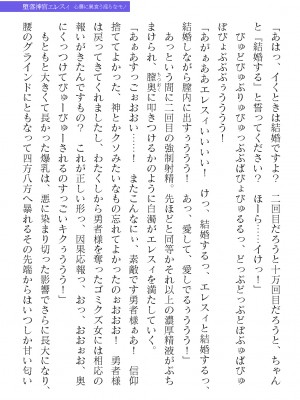 堕落神官エレスィ 心臓に巣食う淫らなモノ
「あはっ、イくときは結婚ですよ？　二回目だろうと十万回目だろうと、ちゃん
と『結婚する』と誓ってください？　ほーらーーイけっ！」
びゅどびゅるびゅっぷぶばびょびゅるるるっ、どっぷぶどっぷどぶりゅばびゅ
ぽびょぶぶぅぅううう！
「あがぁああエレスィいいいい！　けっ、結婚するっ、エレスィと結婚するっ、
結婚しながら膣内に出すぅううう！　あっ、愛して、愛してるぅうう！」
あっという間に二回目の強制射精。先ほどと同等かそれ以上の濃厚精液がぶち
まけられ、膣奥に叩きつけるかのように白濁がエレスィを満たしていく。
「あぁあすっごぉおおい……！　またこんなにぃ、素敵です勇者様ぁあ！　信仰
捨ててよかった、神とかクソみたいなもの忘れてよかったのぉおおお！　勇者様
は戻ってきてくれましたし、わたくしから勇者様を奪ったゴミクズ女には相応の
報いがきたんですもの？　これが正しい形っ、因果応報っ、おっ、おぉぉお、奥
にくっつけてびゅーびゅーきされるのすっごいキクぅううう！」
もともと大きくて長かった爆乳は、悪に染まり切った影響でさらに長大になり、
腰のグラインドにともなって四方八方へ暴れるその先端からはいつしか甘い匂い